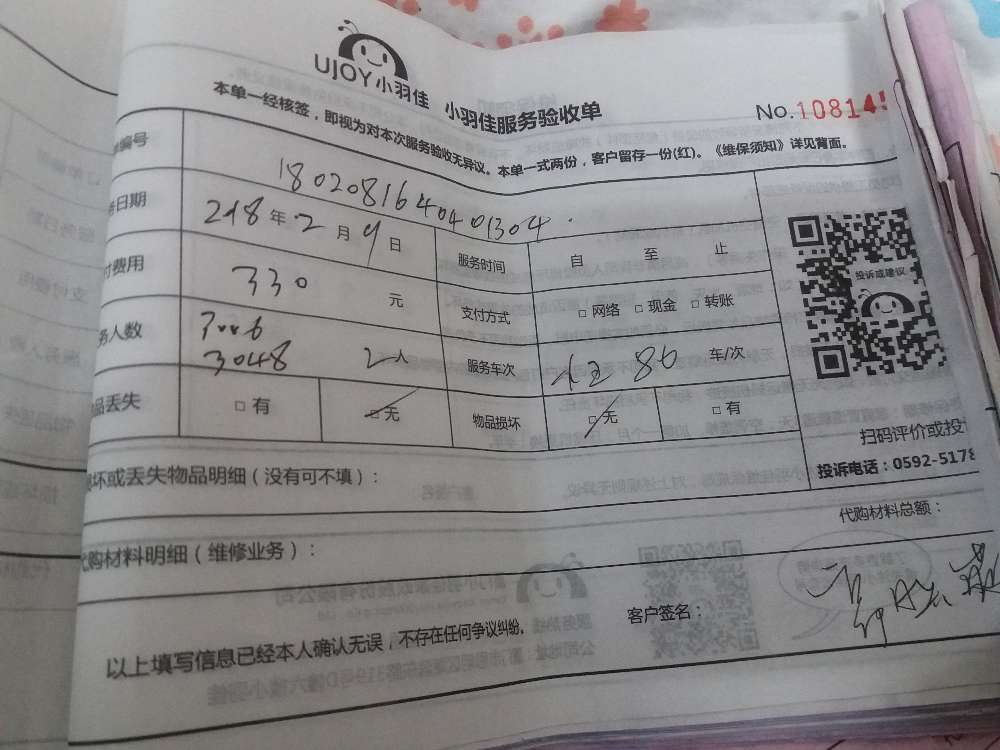 UJOY小羽佳 小羽佳服务验收单
No.10814
本单一经核签，即视为对本次服务验收无异议。本单一式两份，客户留存一份(红)。《维保须知》详见背面。
编号 180208164040 1304
日期 2018年2月9日 服务时间 自 至 止
付费用 330 元 支付方式 □网络 □现金 □转账
务人数 3006 3048 2人 服务车次 86 车/次
品丢失 □有 □无 物品损坏 □无 □有
投诉或建议
扫码评价或投
投诉电话：0592-5178
损坏或丢失物品明细（没有可不填）：
代购材料明细（维修业务）： 代购材料总额：
以上填写信息已经本人确认无误，不存在任何争议纠纷。 客户签名：